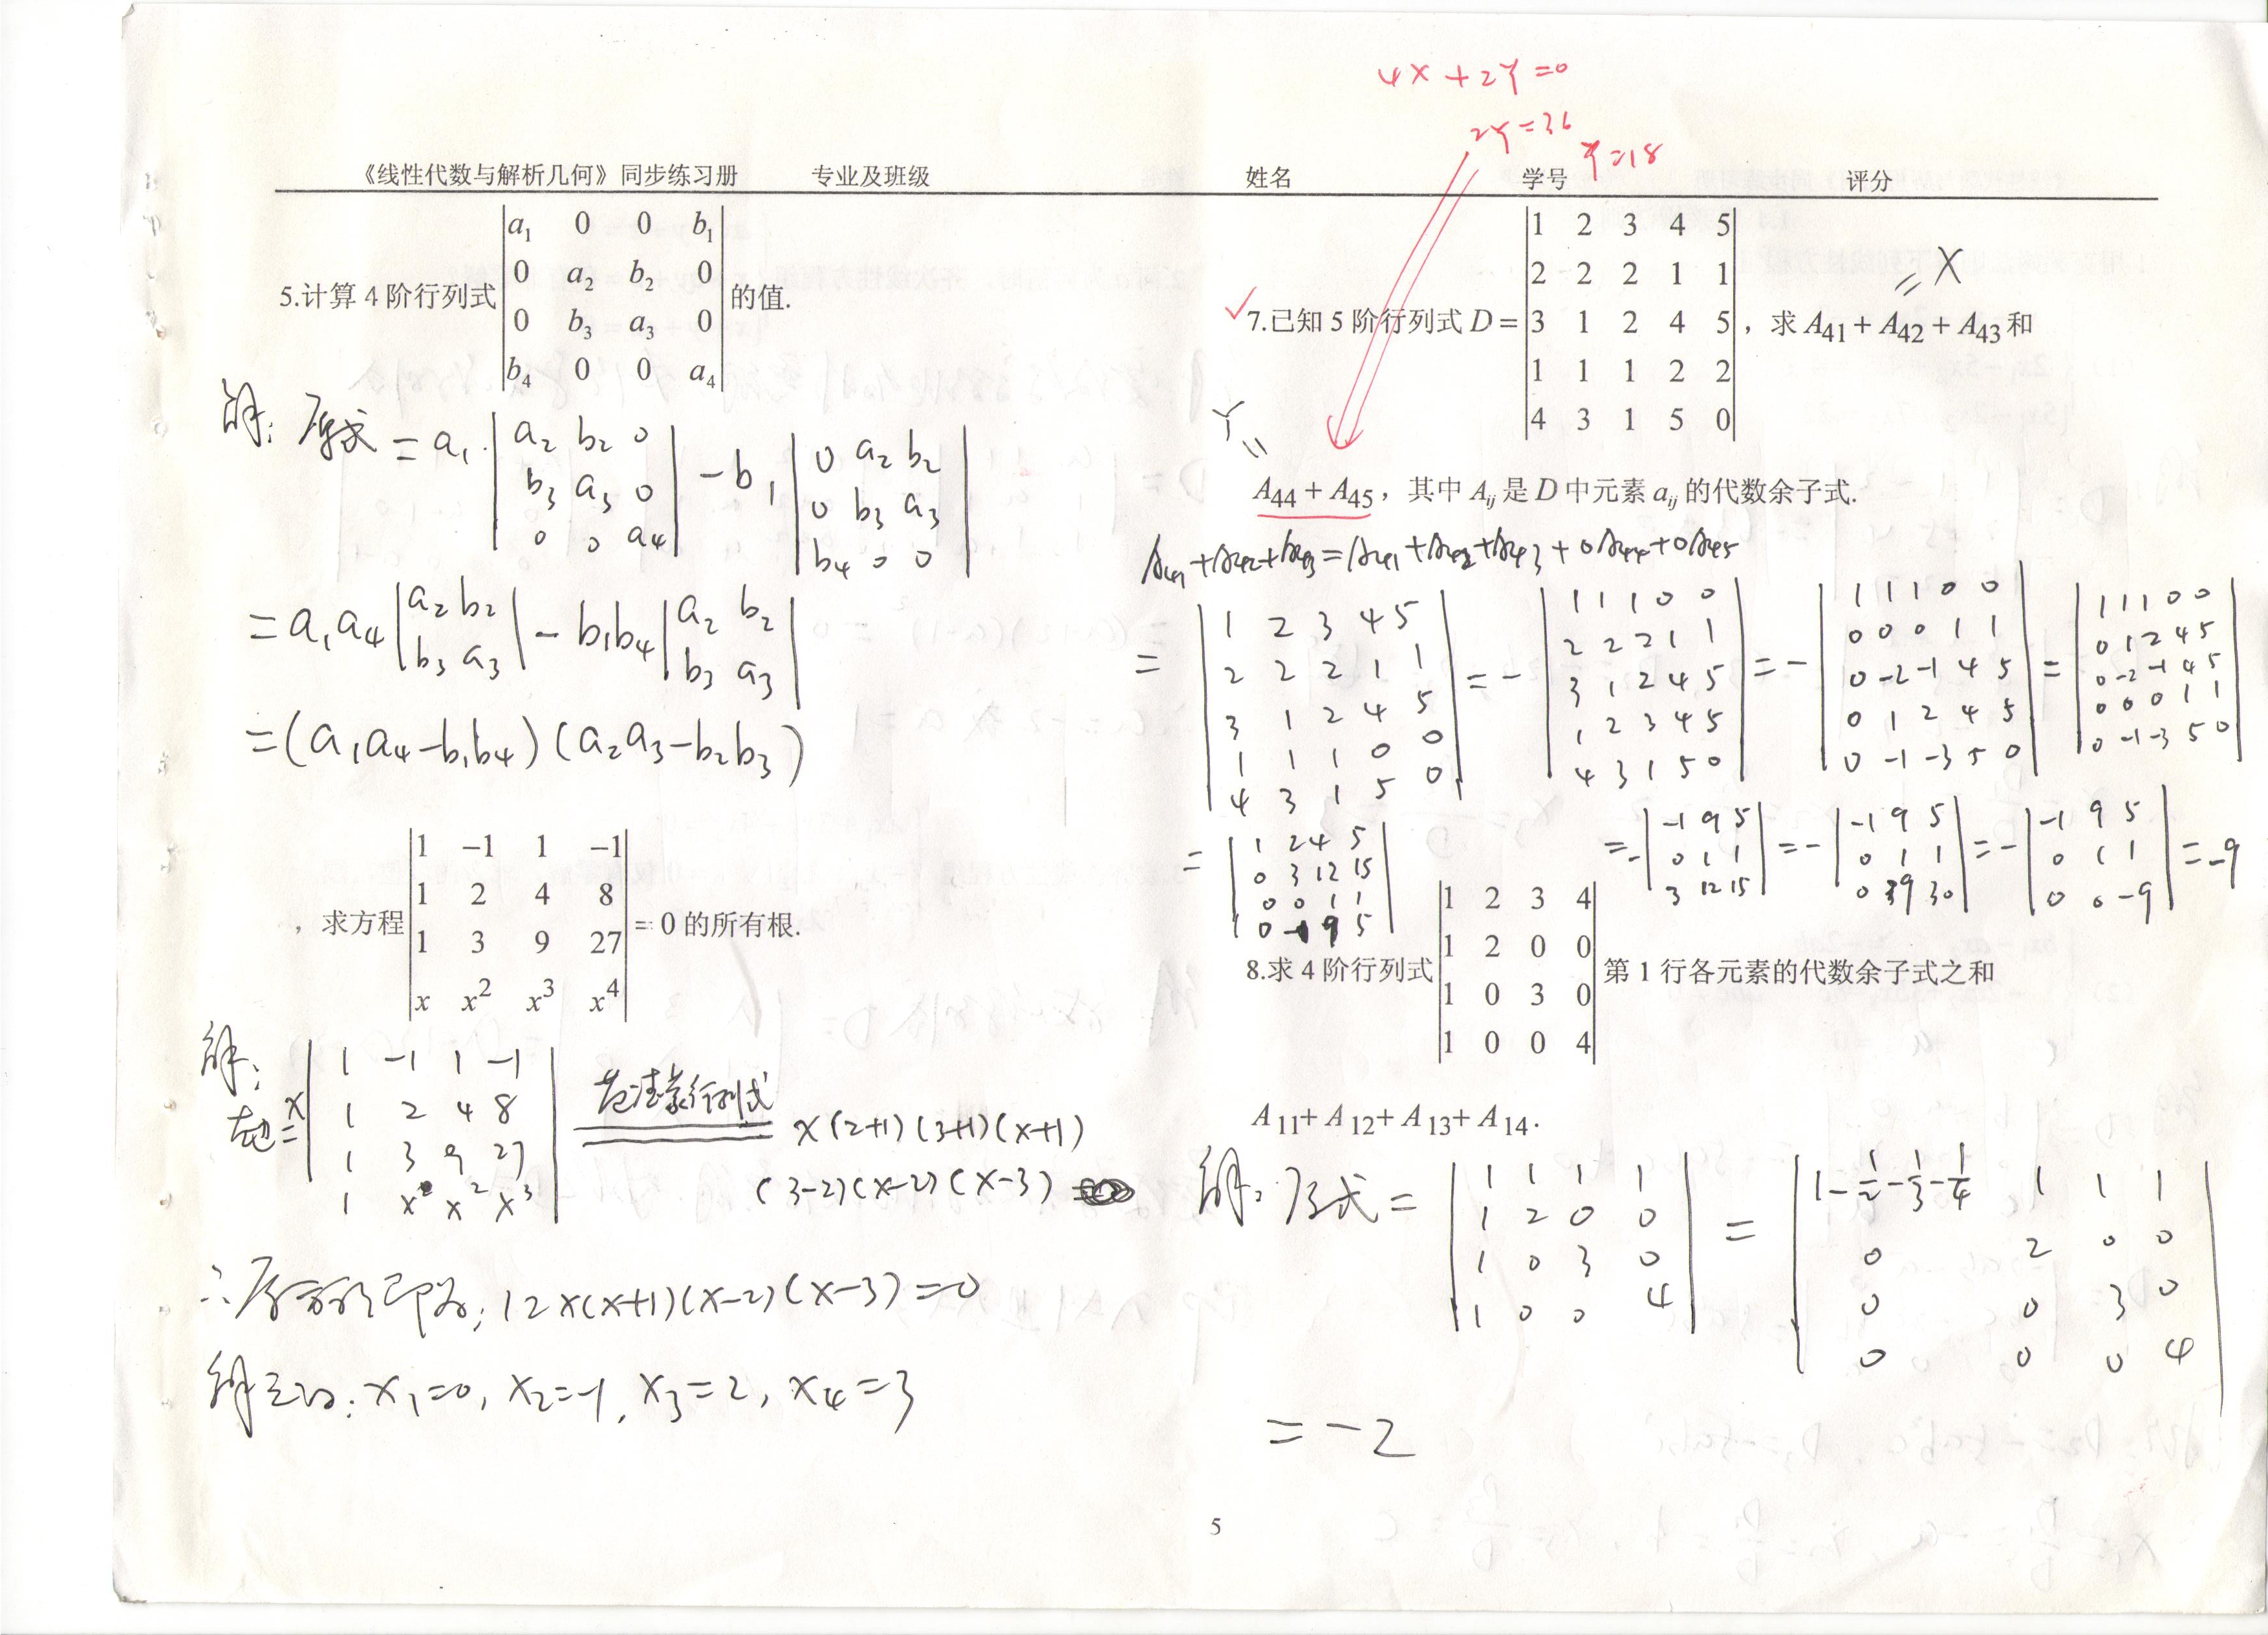 《线性代数与解析几何》同步练习册 专业及班级 姓名 学号 评分
5.计算 4 阶行列式
a₁ 0 0 b₁
0 a₂ b₂ 0
0 b₃ a₃ 0
b₄ 0 0 a₄
的值.
解: 原式 = a₁ ·
a₂ b₂ 0
b₃ a₃ 0
0 0 a₄
- b₁
0 a₂ b₂
0 b₃ a₃
b₄ 0 0
= a₁a₄
a₂ b₂
b₃ a₃
- b₁b₄
a₂ b₂
b₃ a₃
= (a₁a₄-b₁b₄)(a₂a₃-b₂b₃)
, 求方程
1 -1 1 -1
1 2 4 8
1 3 9 27
x x² x³ x⁴
= 0 的所有根.
解:
左边 = x
1 -1 1 -1
1 2 4 8
1 3 9 27
1 x x² x³
范德蒙行列式
x(2+1)(3+1)(x+1)
(3-2)(x-2)(x-3)
∴原方程即为: 12x(x+1)(x-2)(x-3)=0
解之得: x₁=0, x₂=-1, x₃=2, x₄=3
4X+2Y=0
2Y=36
Y=18
7.已知 5 阶行列式 D =
1 2 3 4 5
2 2 2 1 1
3 1 2 4 5
1 1 1 2 2
4 3 1 5 0
, 求 A₄₁ + A₄₂ + A₄₃ 和
= X
Y =
A₄₄ + A₄₅, 其中 Aᵢⱼ 是 D 中元素 aᵢⱼ 的代数余子式.
A₄₁+A₄₂+A₄₃=A₄₁+A₄₂+A₄₃+0A₄₄+0A₄₅
=
1 2 3 4 5
2 2 2 1 1
3 1 2 4 5
1 1 1 0 0
4 3 1 5 0
= -
1 1 1 0 0
2 2 2 1 1
3 1 2 4 5
1 2 3 4 5
4 3 1 5 0
= -
1 1 1 0 0
0 0 0 1 1
0 -2 -1 4 5
0 1 2 4 5
0 -1 -3 5 0
=
1 1 1 0 0
0 1 2 4 5
0 -2 -1 4 5
0 0 0 1 1
0 -1 -3 5 0
=
1 2 4 5
0 3 12 15
0 0 1 1
0 -1 9 5
= -
-1 9 5
0 1 1
3 12 15
= -
-1 9 5
0 1 1
0 39 30
= -
-1 9 5
0 1 1
0 0 -9
= -9
8.求 4 阶行列式
1 2 3 4
1 2 0 0
1 0 3 0
1 0 0 4
第 1 行各元素的代数余子式之和
A₁₁+ A₁₂+ A₁₃+ A₁₄.
解: 原式 =
1 1 1 1
1 2 0 0
1 0 3 0
1 0 0 4
=
1-1/2-1/3-1/4 1 1 1
0 2 0 0
0 0 3 0
0 0 0 4
= -2
5